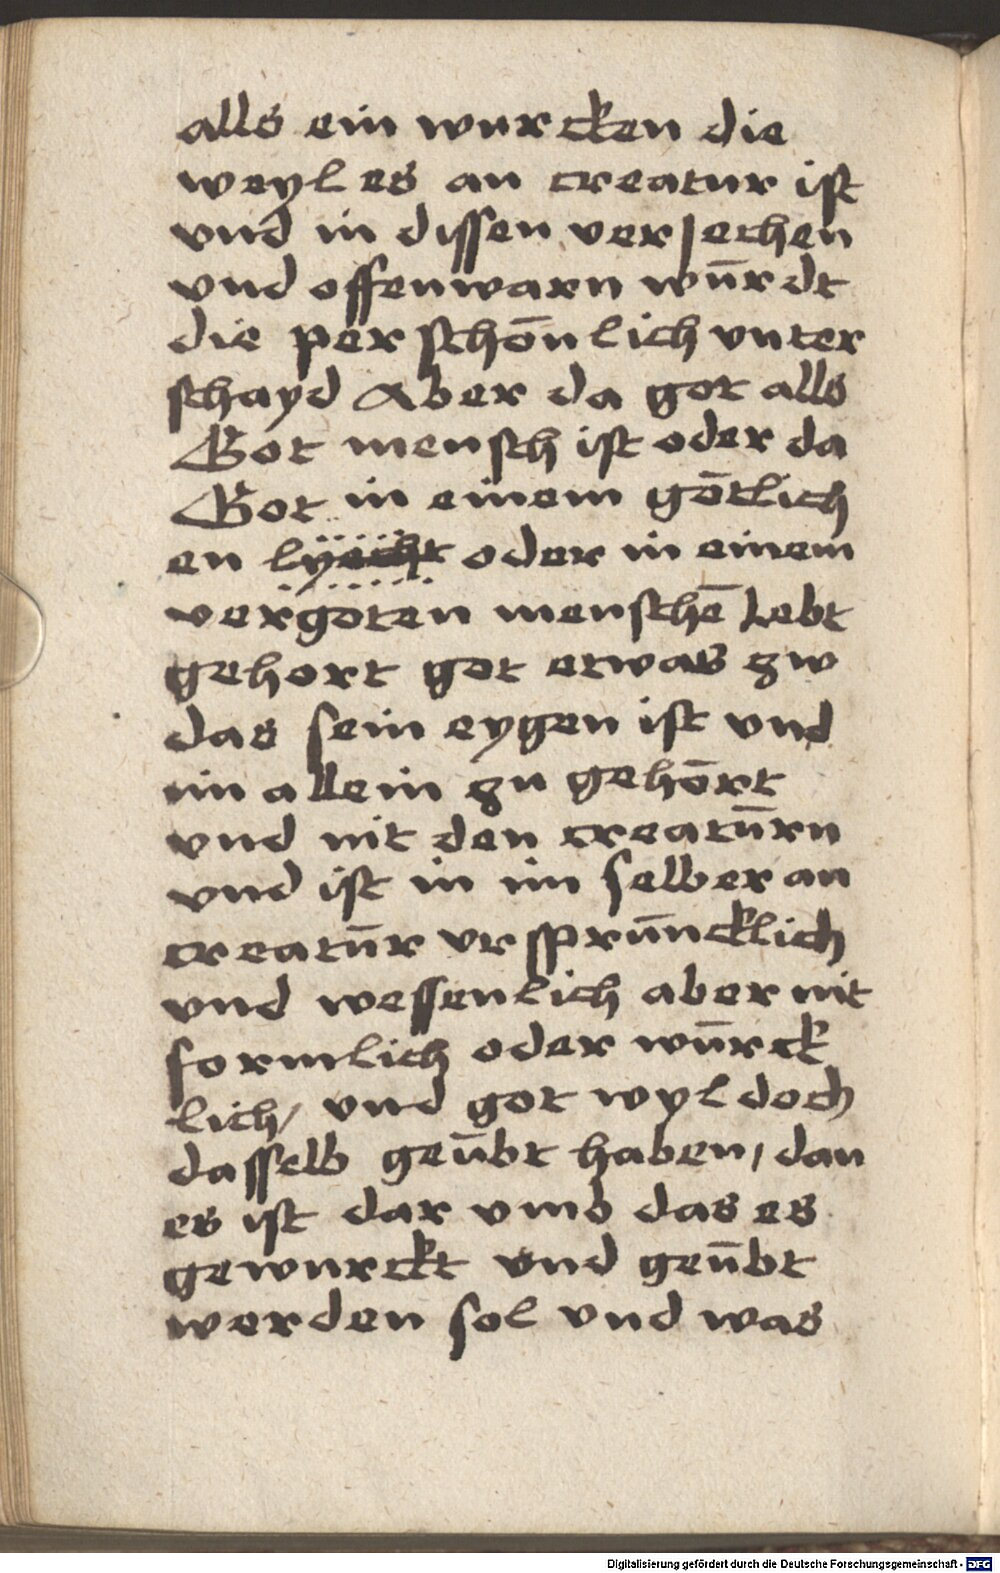 alls ein wurcken die
weyl es an creatur ist
vnd in dissen versechen
vnd offenwarn wūrdt
die perschōnlich vnter
schayd Aber da got alls
Got mensch ist oder da
Got in einem gōtlich
en lyecht oder in einem
vergoten menschē Lebt
gehort got etwas zw
das sein eygen ist vnd
im allein zu gehōrt
vnd nit den creatūrn
vnd ist in im selber an
creatūr vrsprūncklich
vnd wessenlich aber nit
formlich oder wūrck
lich/ vnd got wyl doch
dasselb geūbt haben/ dan
es ist dar vmb das es
gewurckt vnd geūbt
werden sol vnd was
Digitalisierung gefördert durch die Deutsche Forschungsgemeinschaft - DFG